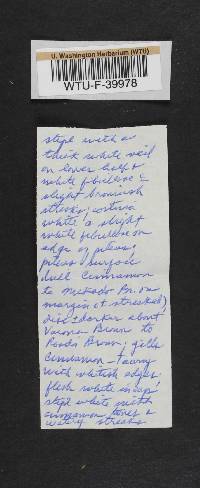 U. Washington Herbarium (WTU)
WTU-F-39978
stipe with a
thick white veil
on lower half &
white fibrillose &
slight brownish
streaks; cortina
white & slight
white fibrillose on
edge of pileus;
pileus surface
dull Cinnamon
to Mikado Br. on
margin (& streaked)
disc darker about
Verona Brown to
Brown; gills
Cinnamon-tawny
with whitish edges
flesh white in cap;
stipe white with
cinnamon tones &
watery streaks